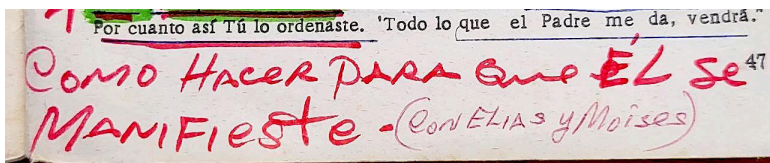 Por cuanto así Tú lo ordenaste. 'Todo lo que el Padre me da, vendrá."
47
COMO HACER PARA QUE ÉL SE
MANIFIESTE - (CON ELIAS y MOISES)